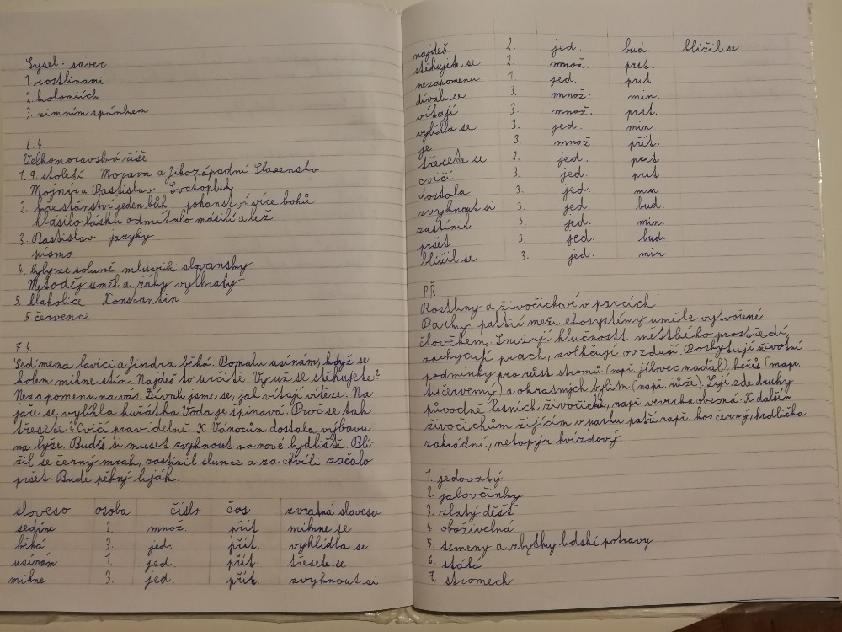 Sysel - savec
1. rostlinami
2. koloniích
3. zimním spánkem
Velkomoravská říše
1. 9. století Morava a Jihozápadní Slovensko
Mojmír a Rastislav Svatopluk
2. křesťanství jeden bůh pohanství více bohů
hlásilo lásku odmítalo násilí a lež
3. Rastislav jazyky
písmo
mluvili slovansky
Metoděj uměl a
5. Hlaholice Konstantin
5. července
Sedíme na lavici a Jindra běhá. Pomalu usínám, když se
kolem mihne stín. Najdeš to určitě. Vy už se stěhujete?
Nezapomenu na vás. Dívali jsme se, jak vítají vítěze. Na
jaře se vyběhla kuřátka Voda je špinavá. Proč se tak
třesete? Cvičí pravidelně. K Vánocům dostala výbavu
na lyže. Budeš si muset zvyknout na nové bydliště. Blí-
žil se černý mrak, zastínil slunce a za chvíli začalo
pršet. Bude pěkný liják.
sloveso osoba číslo čas zvratná slovesa
sedíme 1. množ. přít. mihne se
běhá 3. jed. přít. vyhlídla se
usínám 1. jed. přít. třesete se
mihne 3. jed. přít. zvyknout se
najdeš 2. jed. bud. blížil se
stěhujete se 2. množ. přít.
nezapomenu 1. jed. přít.
dívali se 3. množ. min.
vítají 3. množ. přít.
3. jed. min
je 3. množ přít.
třesete se 2. jed. přít
cvičí 3. jed. přít
dostala 3. jed. min
zvyknout si 3. jed. bud.
zastínil 3. jed. min.
pršet 3. jed. bud
blížil se 3. jed. min
PŘ
Rostliny a živočichové v parcích
Parky patří mezi ekosystémy uměle vytvořené
člověkem. Snižují hlučnost městského prostředí,
zachycují prach, zvlhčují ovzduší. Poskytují životní
podmínky pro růst stromů (např. jírovec maďal), keřů (např.
bez černý) a okrasných bylin (např. růže). Žijí zde druhy
původně lesních živočichů, např. veverka obecná. K dalším
živočichům žijícím v parku patří např. kos černý, hrdlička
zahradní, netopýr hvízdavý
1. jedovatý
2. jalovčinky
3. zlatý déšť
4. obojživelná
5. semeny a zbytky lidské potravy
6. ptáci
7. stromech